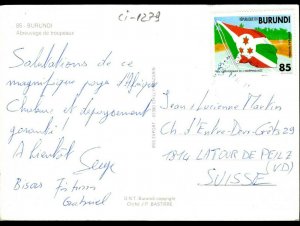 85 - BURUNDI
Abreuvage de troupeaux
Ci-1279
REPUBLIQUE DU BURUNDI
85
Salutations de ce
magnifique pays d'Afrique
Chaleur et dépaysement
garanti !
A bientôt Serge
Bises
Gabriel
Jean-Lucienne Martin
Ch. d'Entre-Deux-Crêts 29
1814 LATOUR DE PEILZ
(VD)
SUISSE
U.N.T. Burundi copyright
Cliché J.P. BASTIERE